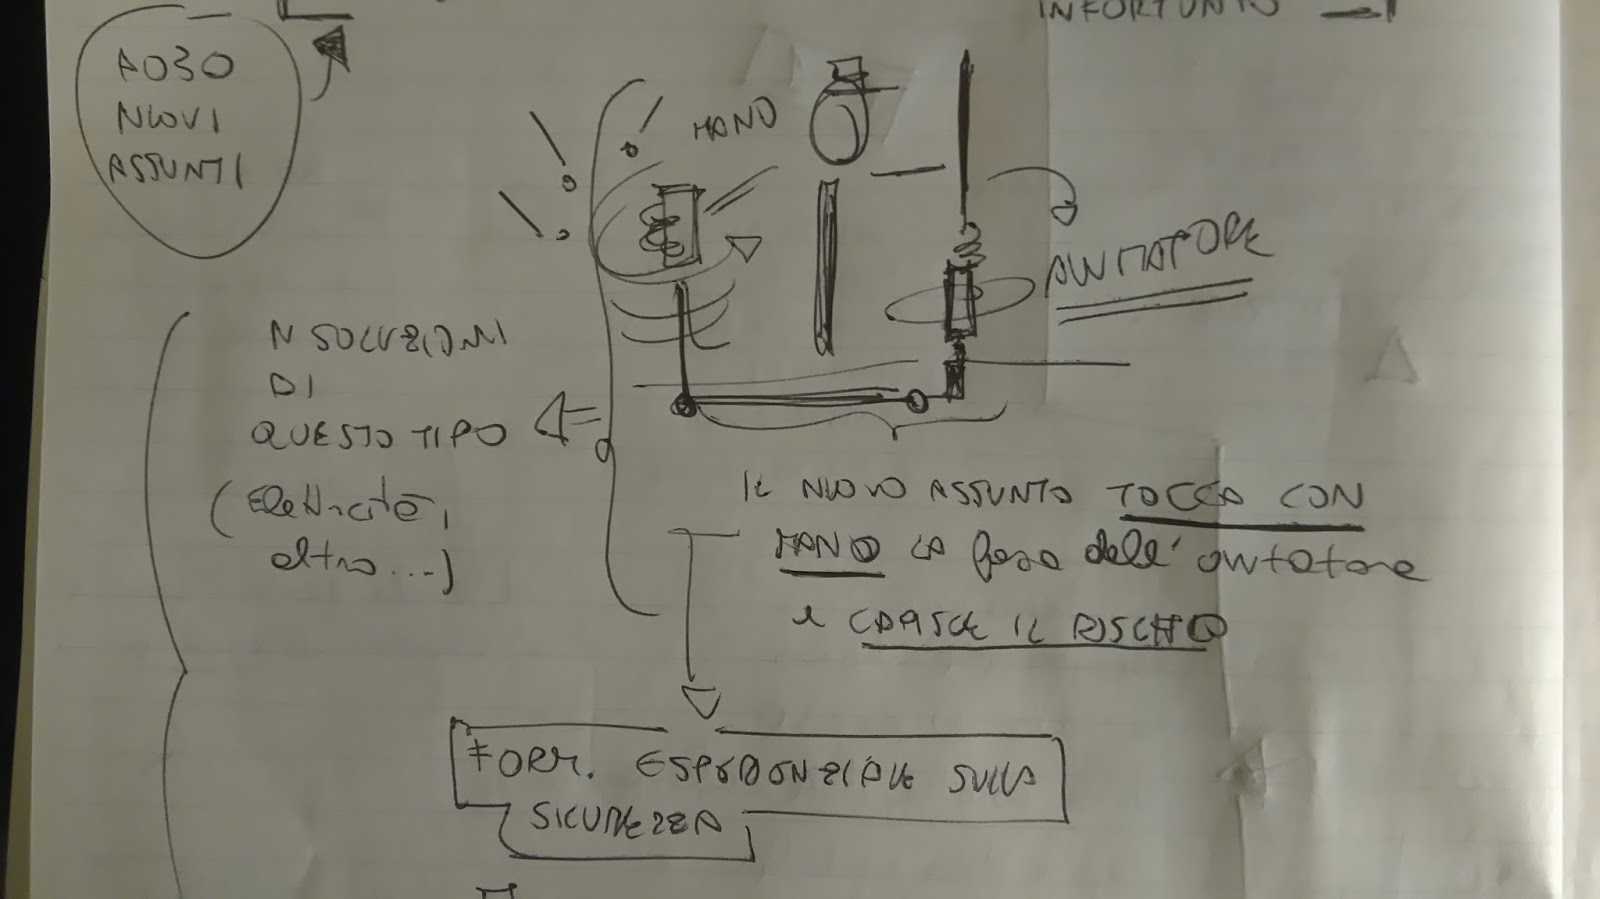 INFORTUNIO
A030
NUOVI
ASSUNTI
MANO
AVVITATORE
N SOLUZIONI
DI
QUESTO TIPO
(Elettricità,
altro...)
IL NUOVO ASSUNTO TOCCA CON
MANO LA forza dell'avvitatore
e CAPISCE IL RISCHIO
FORM. ESPERIENZIALE SULLA
SICUREZZA